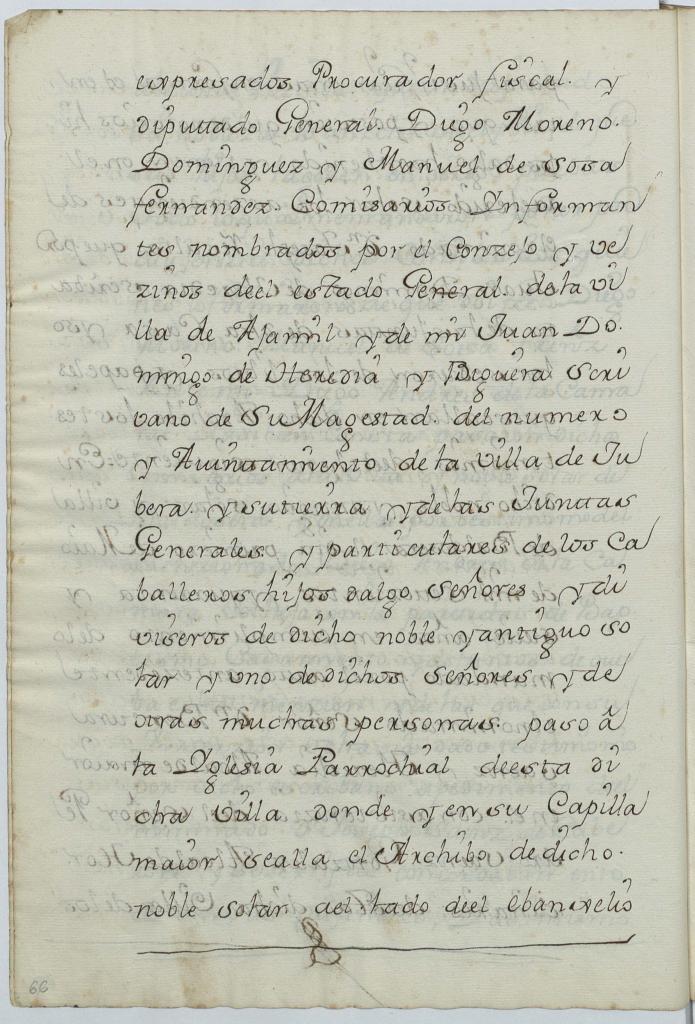 expresados Procurador fiscal. y
diputtado General. Diego Moreno.
Dominguez y Manuel de sosa
fernandez. Comisarios Ynforman
tes nombrados por el Conzejo y ve
zinos deel estado General. de la vi
lla de Ajamil y de mi Juan Do.
mingo de Heredia y Biguera scri
vano de Su Magestad. del numero
y Aiuntamiento de la villa de Ju
bera. y sutierra y de las Junttas
Generales y particulares de los Ca
balleros hijos dalgo señores y di
viseros de dicho noble y antiguo so
lar y uno de dichos señores y de
otras muchas personas. paso â
la Yglesia Parrochial deesta di
cha villa donde y en su Capilla
maior sealla el Archibo de dicho.
noble solar ael lado deel Ebanxelio
66